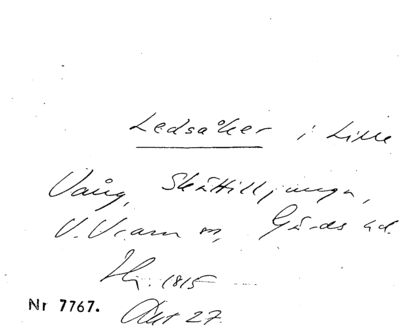 Ledsåker i Lilla
Vång, Skättilljunga,
V. Vram sn, Gärds hd.
1815
Nr 7767. Akt 27.